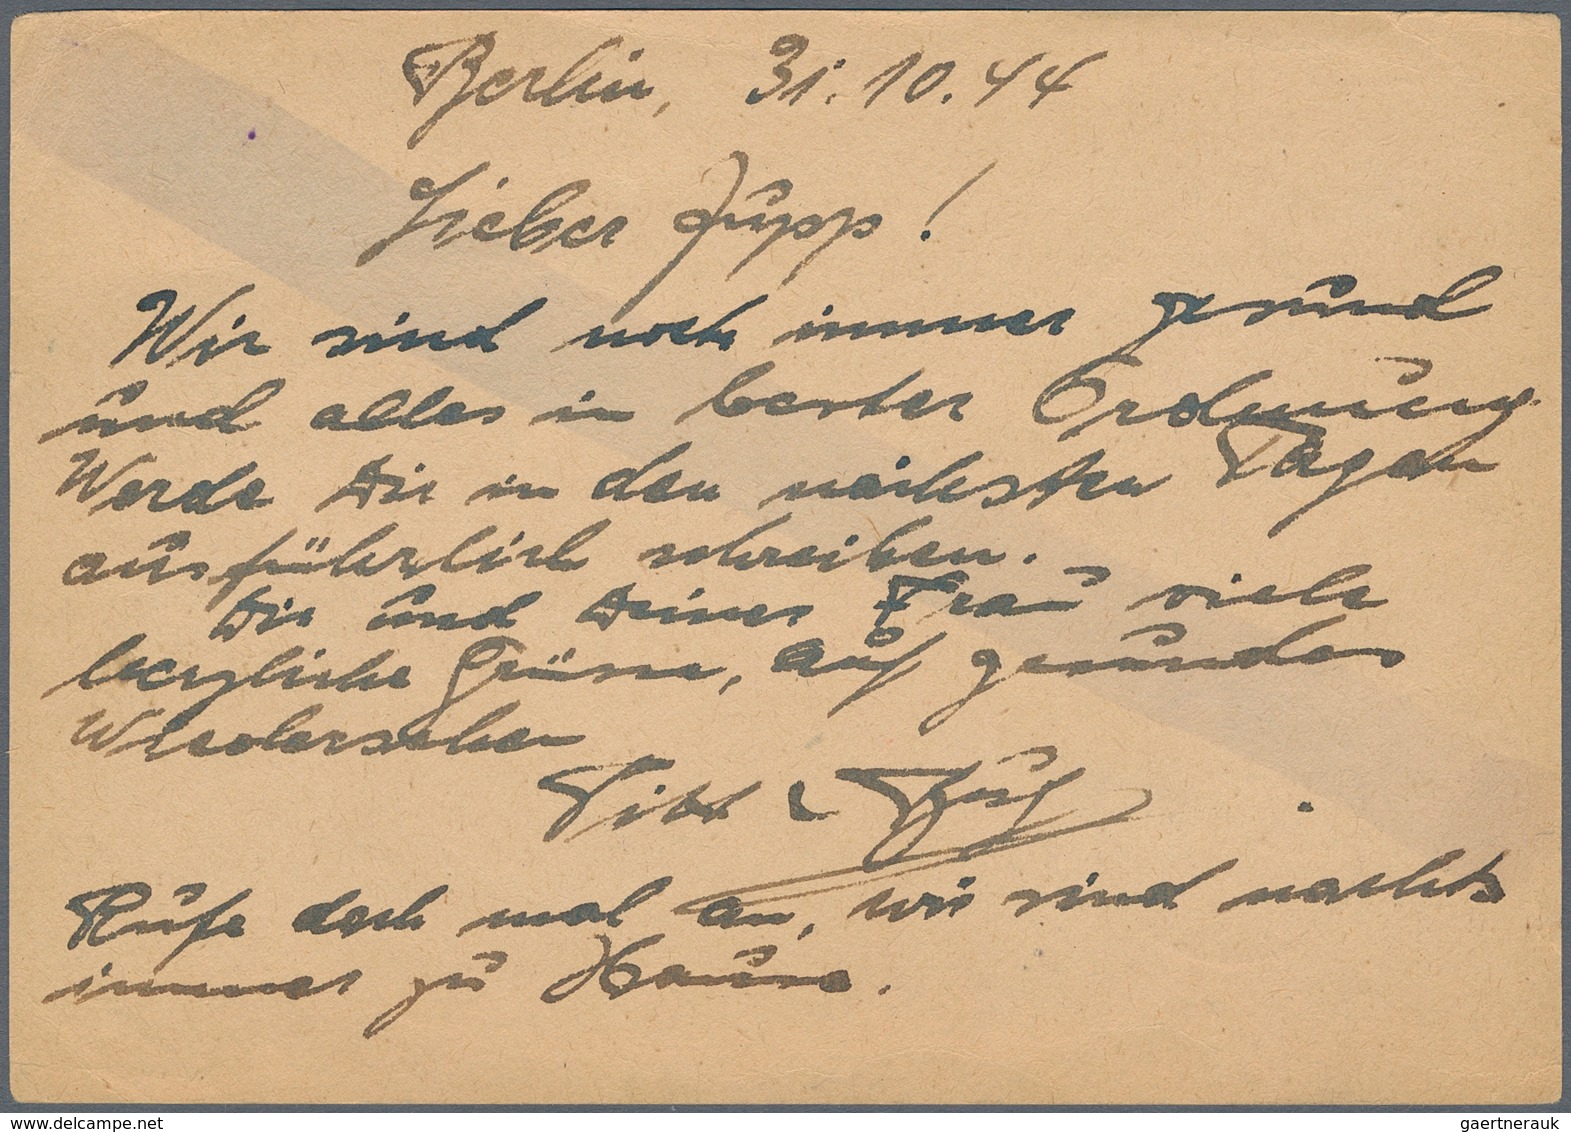 Berlin, 31.10.44
Lieber Jupp!
Wir sind noch immer gesund
und alles in bester Ordnung
Werde Dir in den nächsten Tagen
ausführlich schreiben.
Dir und Deiner Frau viele
herzliche Grüsse, auf gesundes
Wiedersehen
&
Rufe doch mal an, wir sind nachts
immer zu Hause.
www.delcampe.net
gaertnerauk